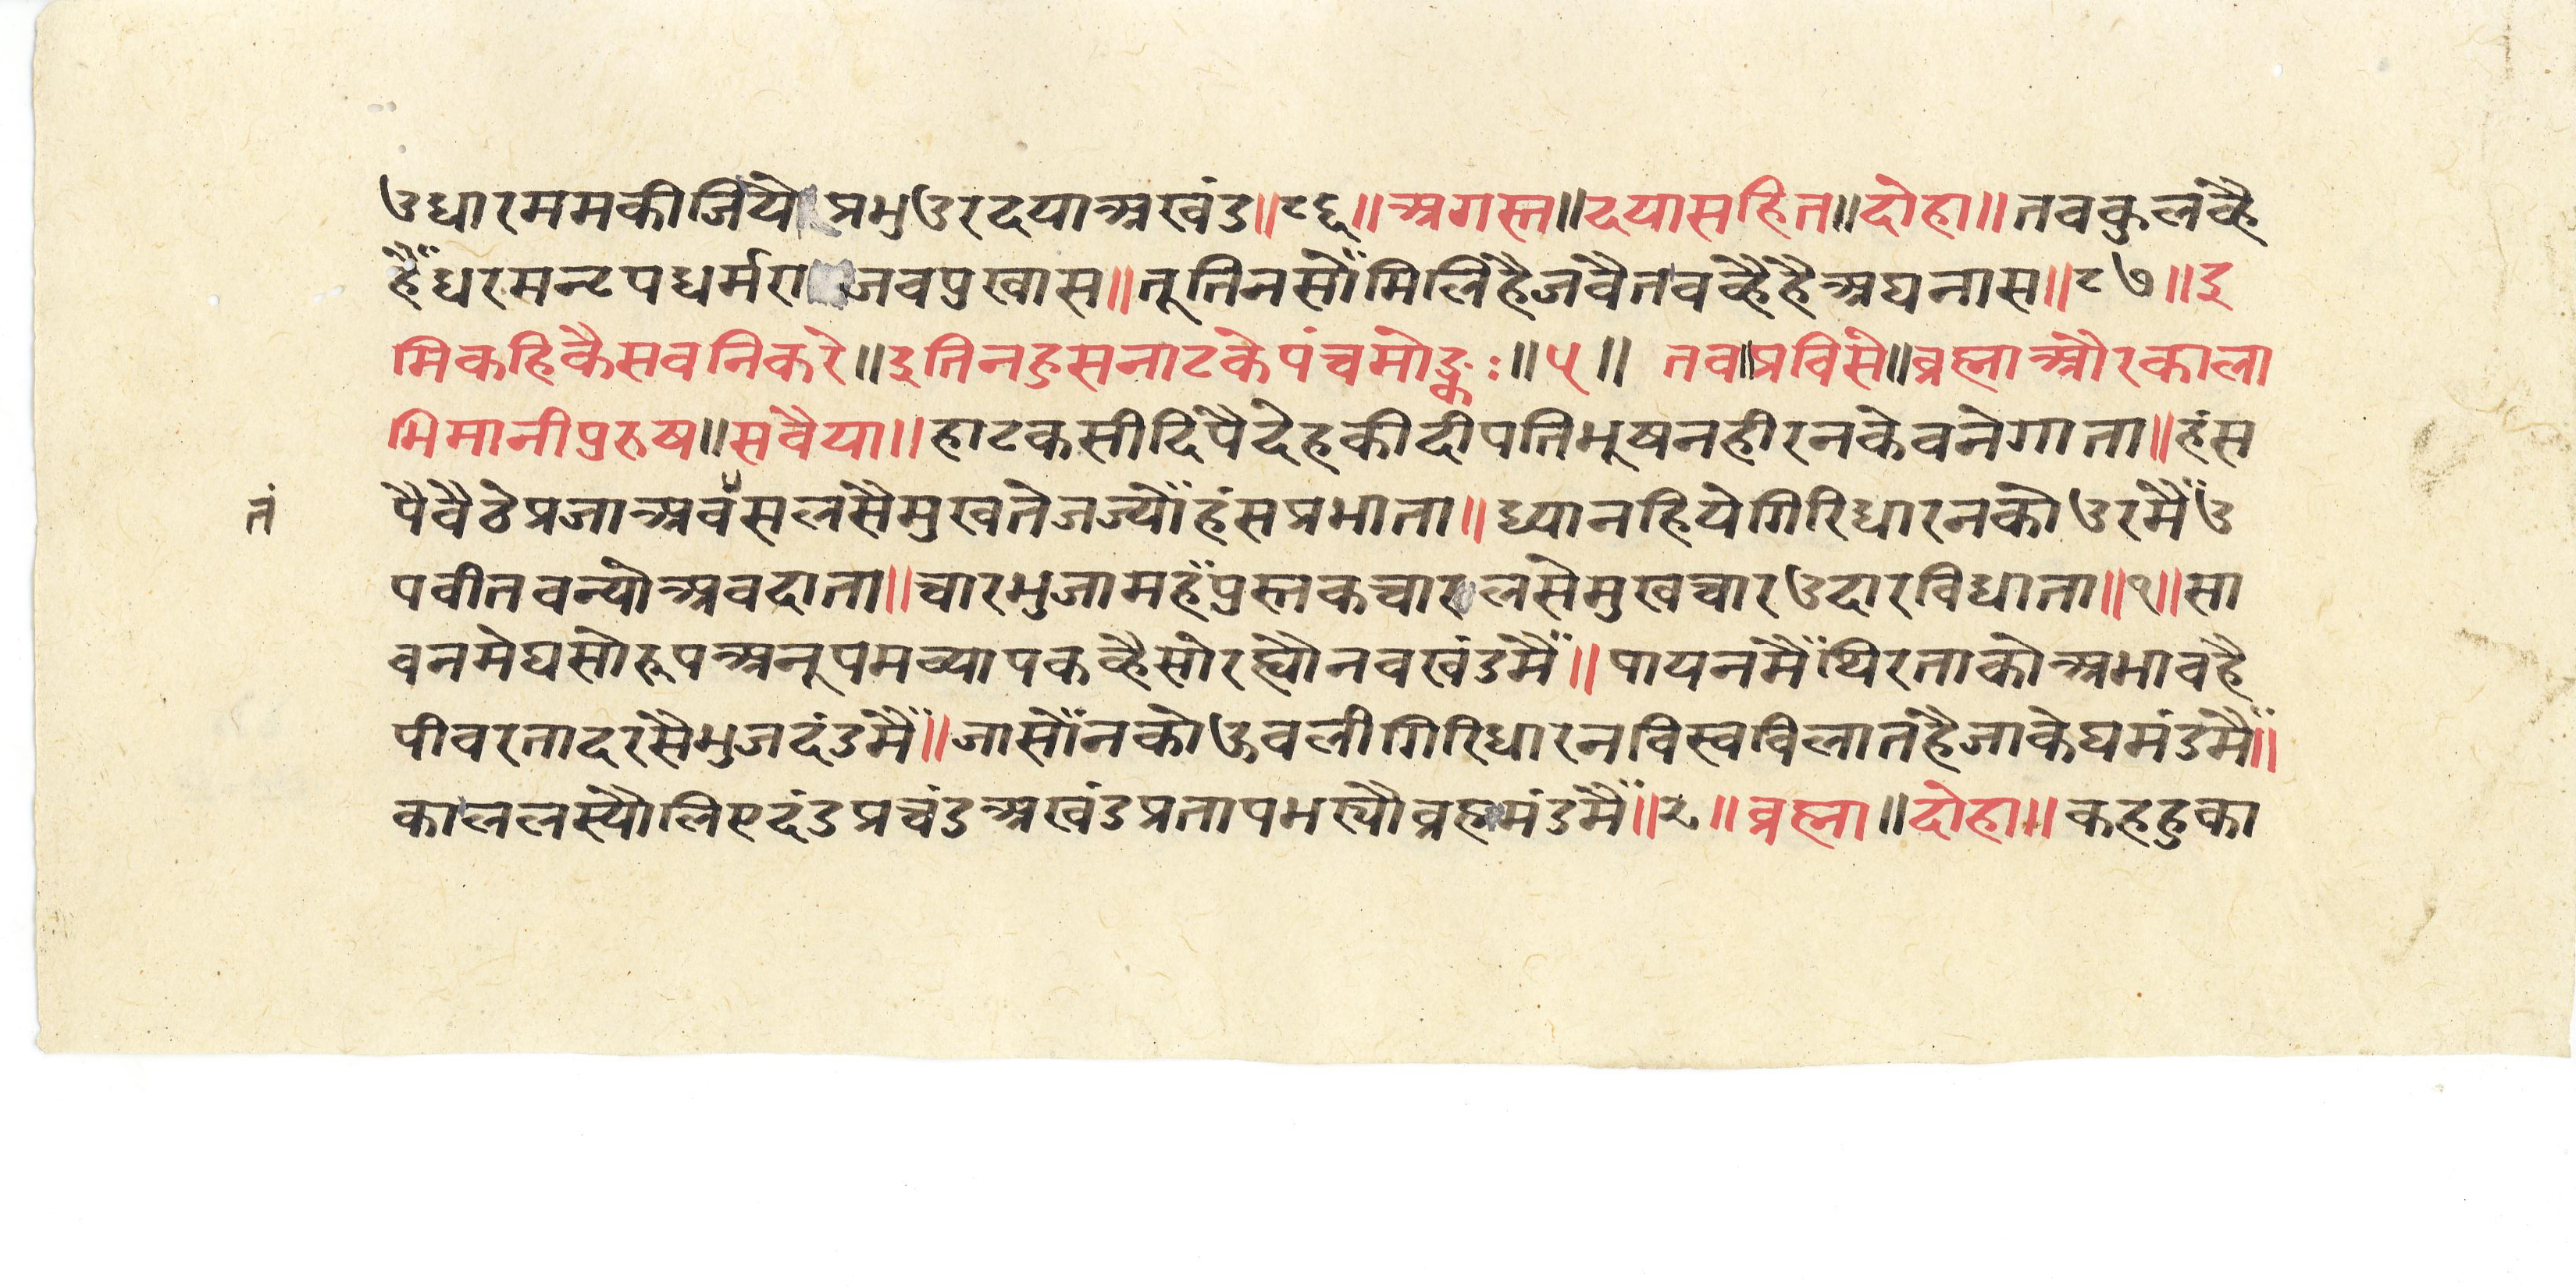 उधारममकीजिये प्रभुउरदयाअखंड॥८६॥अगस्त॥दयासहित॥दोहा॥तवकुलव्है
हैँधरमन्टपधर्मराजवप्रखास॥तूतिनसोँमिलिहैजवैतवव्हैहैअघनास॥८७॥इ
मिकहिकैसवनिकरे॥इतिनहुसनाटकेपंचमोङ्कः॥५॥ तव॥प्रविसे॥ब्रह्माऔरकाला
भिमानीपुरुष॥सवैया॥हाटकसीदिपैदेहकीदीपतिभूषनहीरनकेवनेगाता॥हंस
पैवैठेप्रजाअवसलसैमुखतेजज्योँहंसप्रभाता॥ध्यानहियेगिरिधारनकोउरमैँउ
तं
पवीतवन्योअवदाता॥चारभुजामहँपुस्तकचारुलसेमुखचारउदारविधाता॥१॥सा
वनमेघसोरूपअनूपमव्यापकव्हैसोरह्यौनवखंडमैँ॥पायनमैँथिरताकोअभावहै
पीवरतादरसैभुजदंडमैँ॥जासोँनकोऊवलीगिरिधारनविस्वविलातहैजाकेघमंडमैँ॥
काललस्यौलिएदंडप्रचंडअखंडप्रतापमख्यौब्रह्ममंडमैँ॥२॥ब्रह्मा॥दोहा॥कहहुका